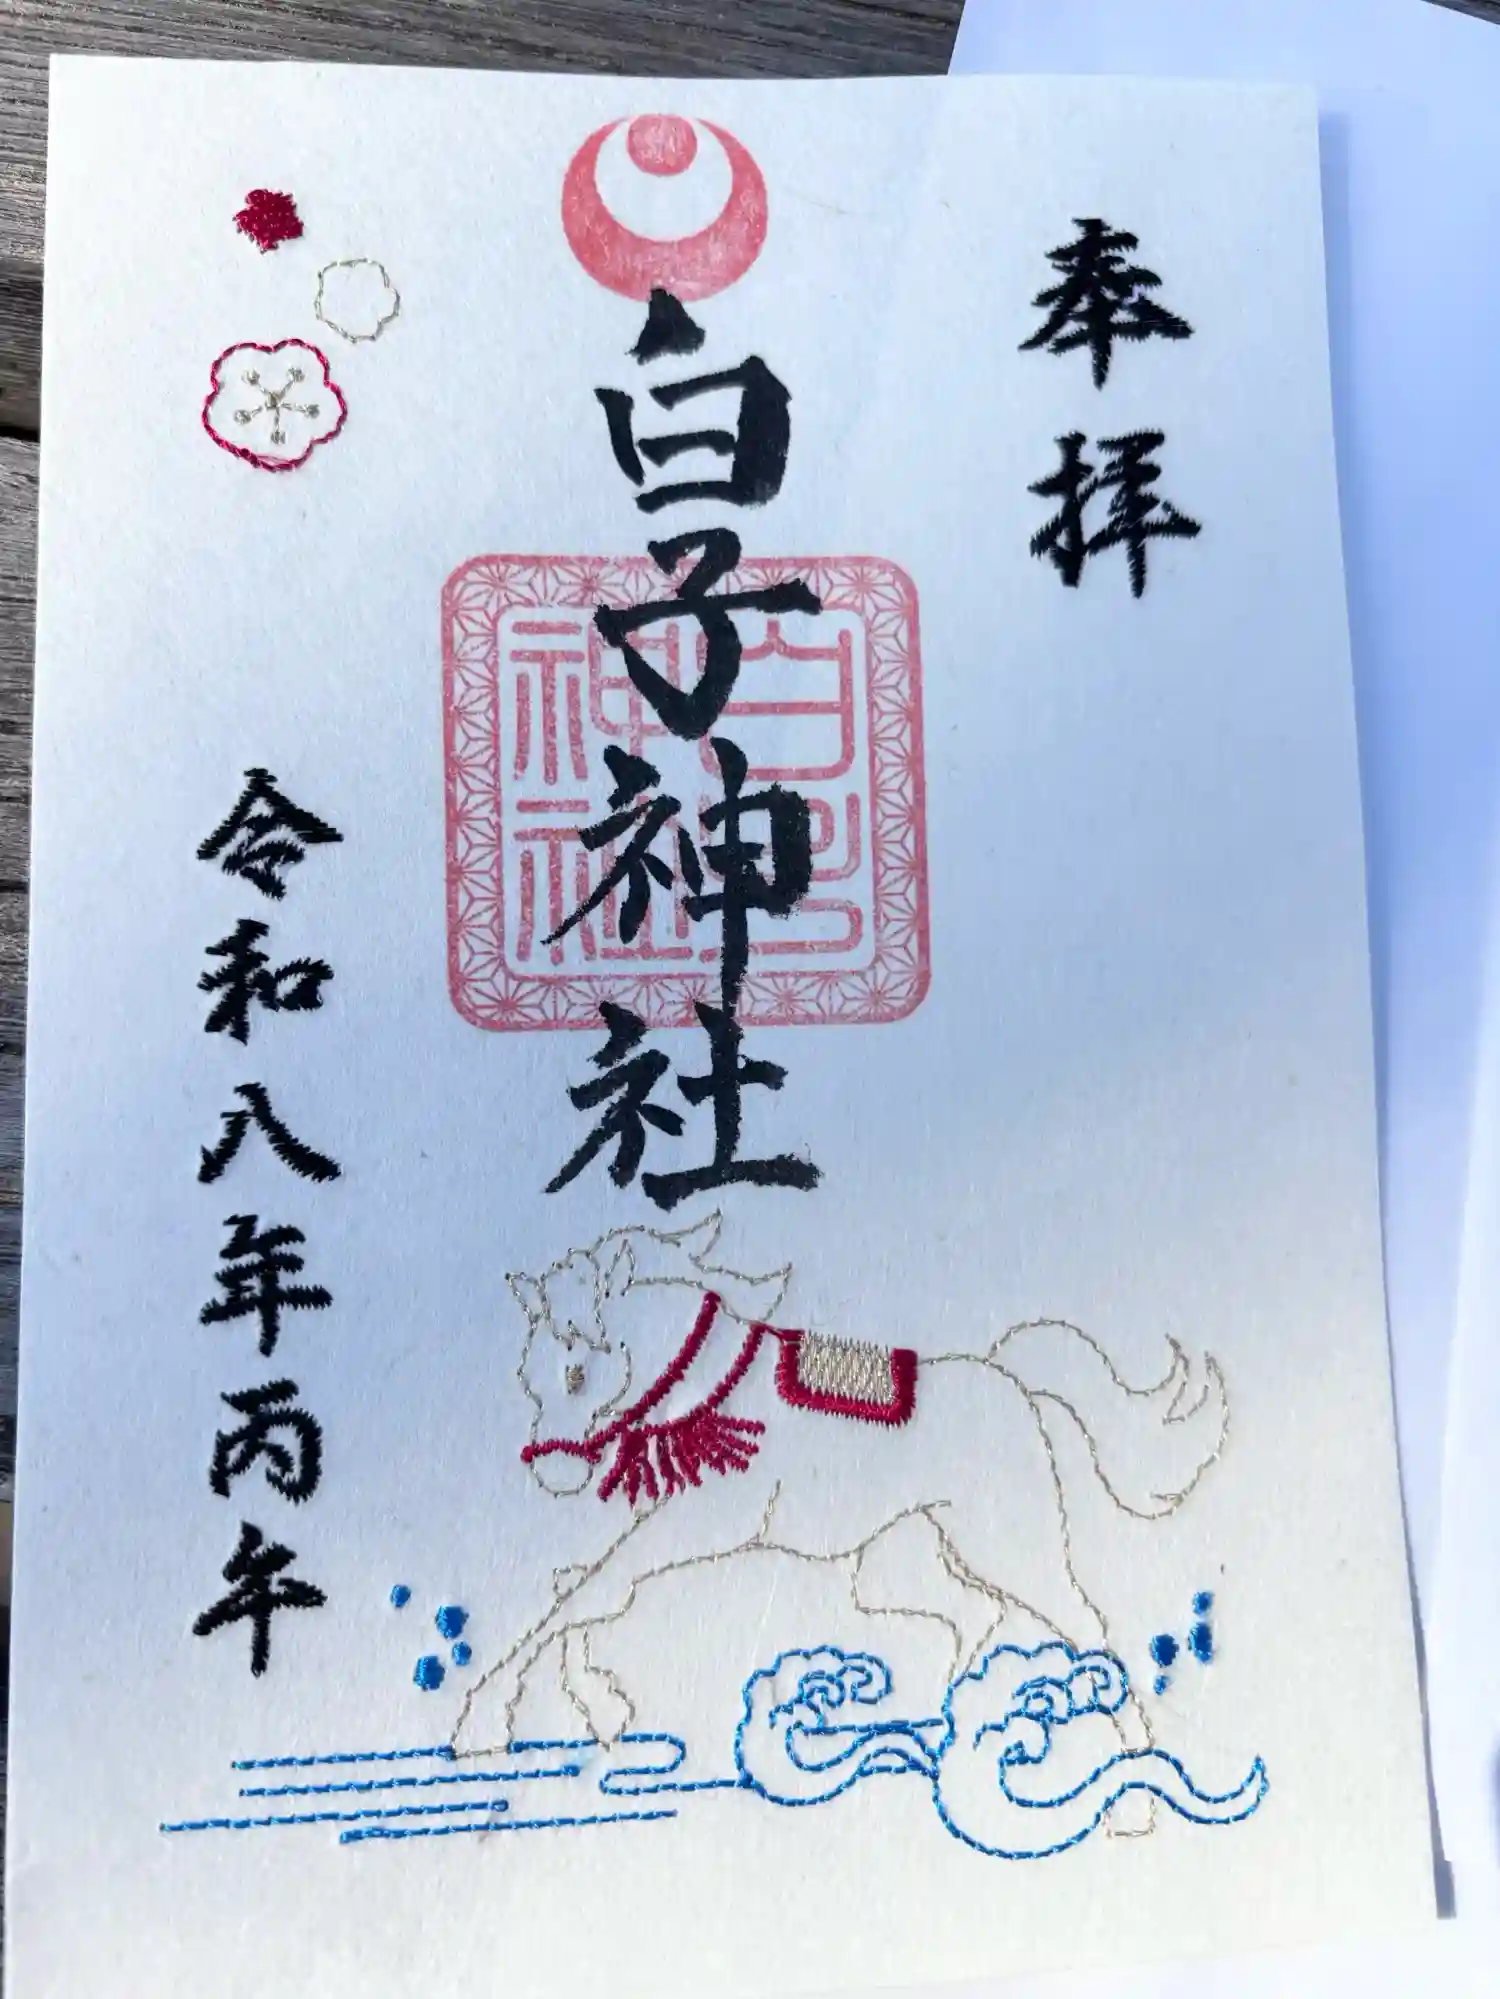 奉拝
白子神社
白子神社
令和八年丙午